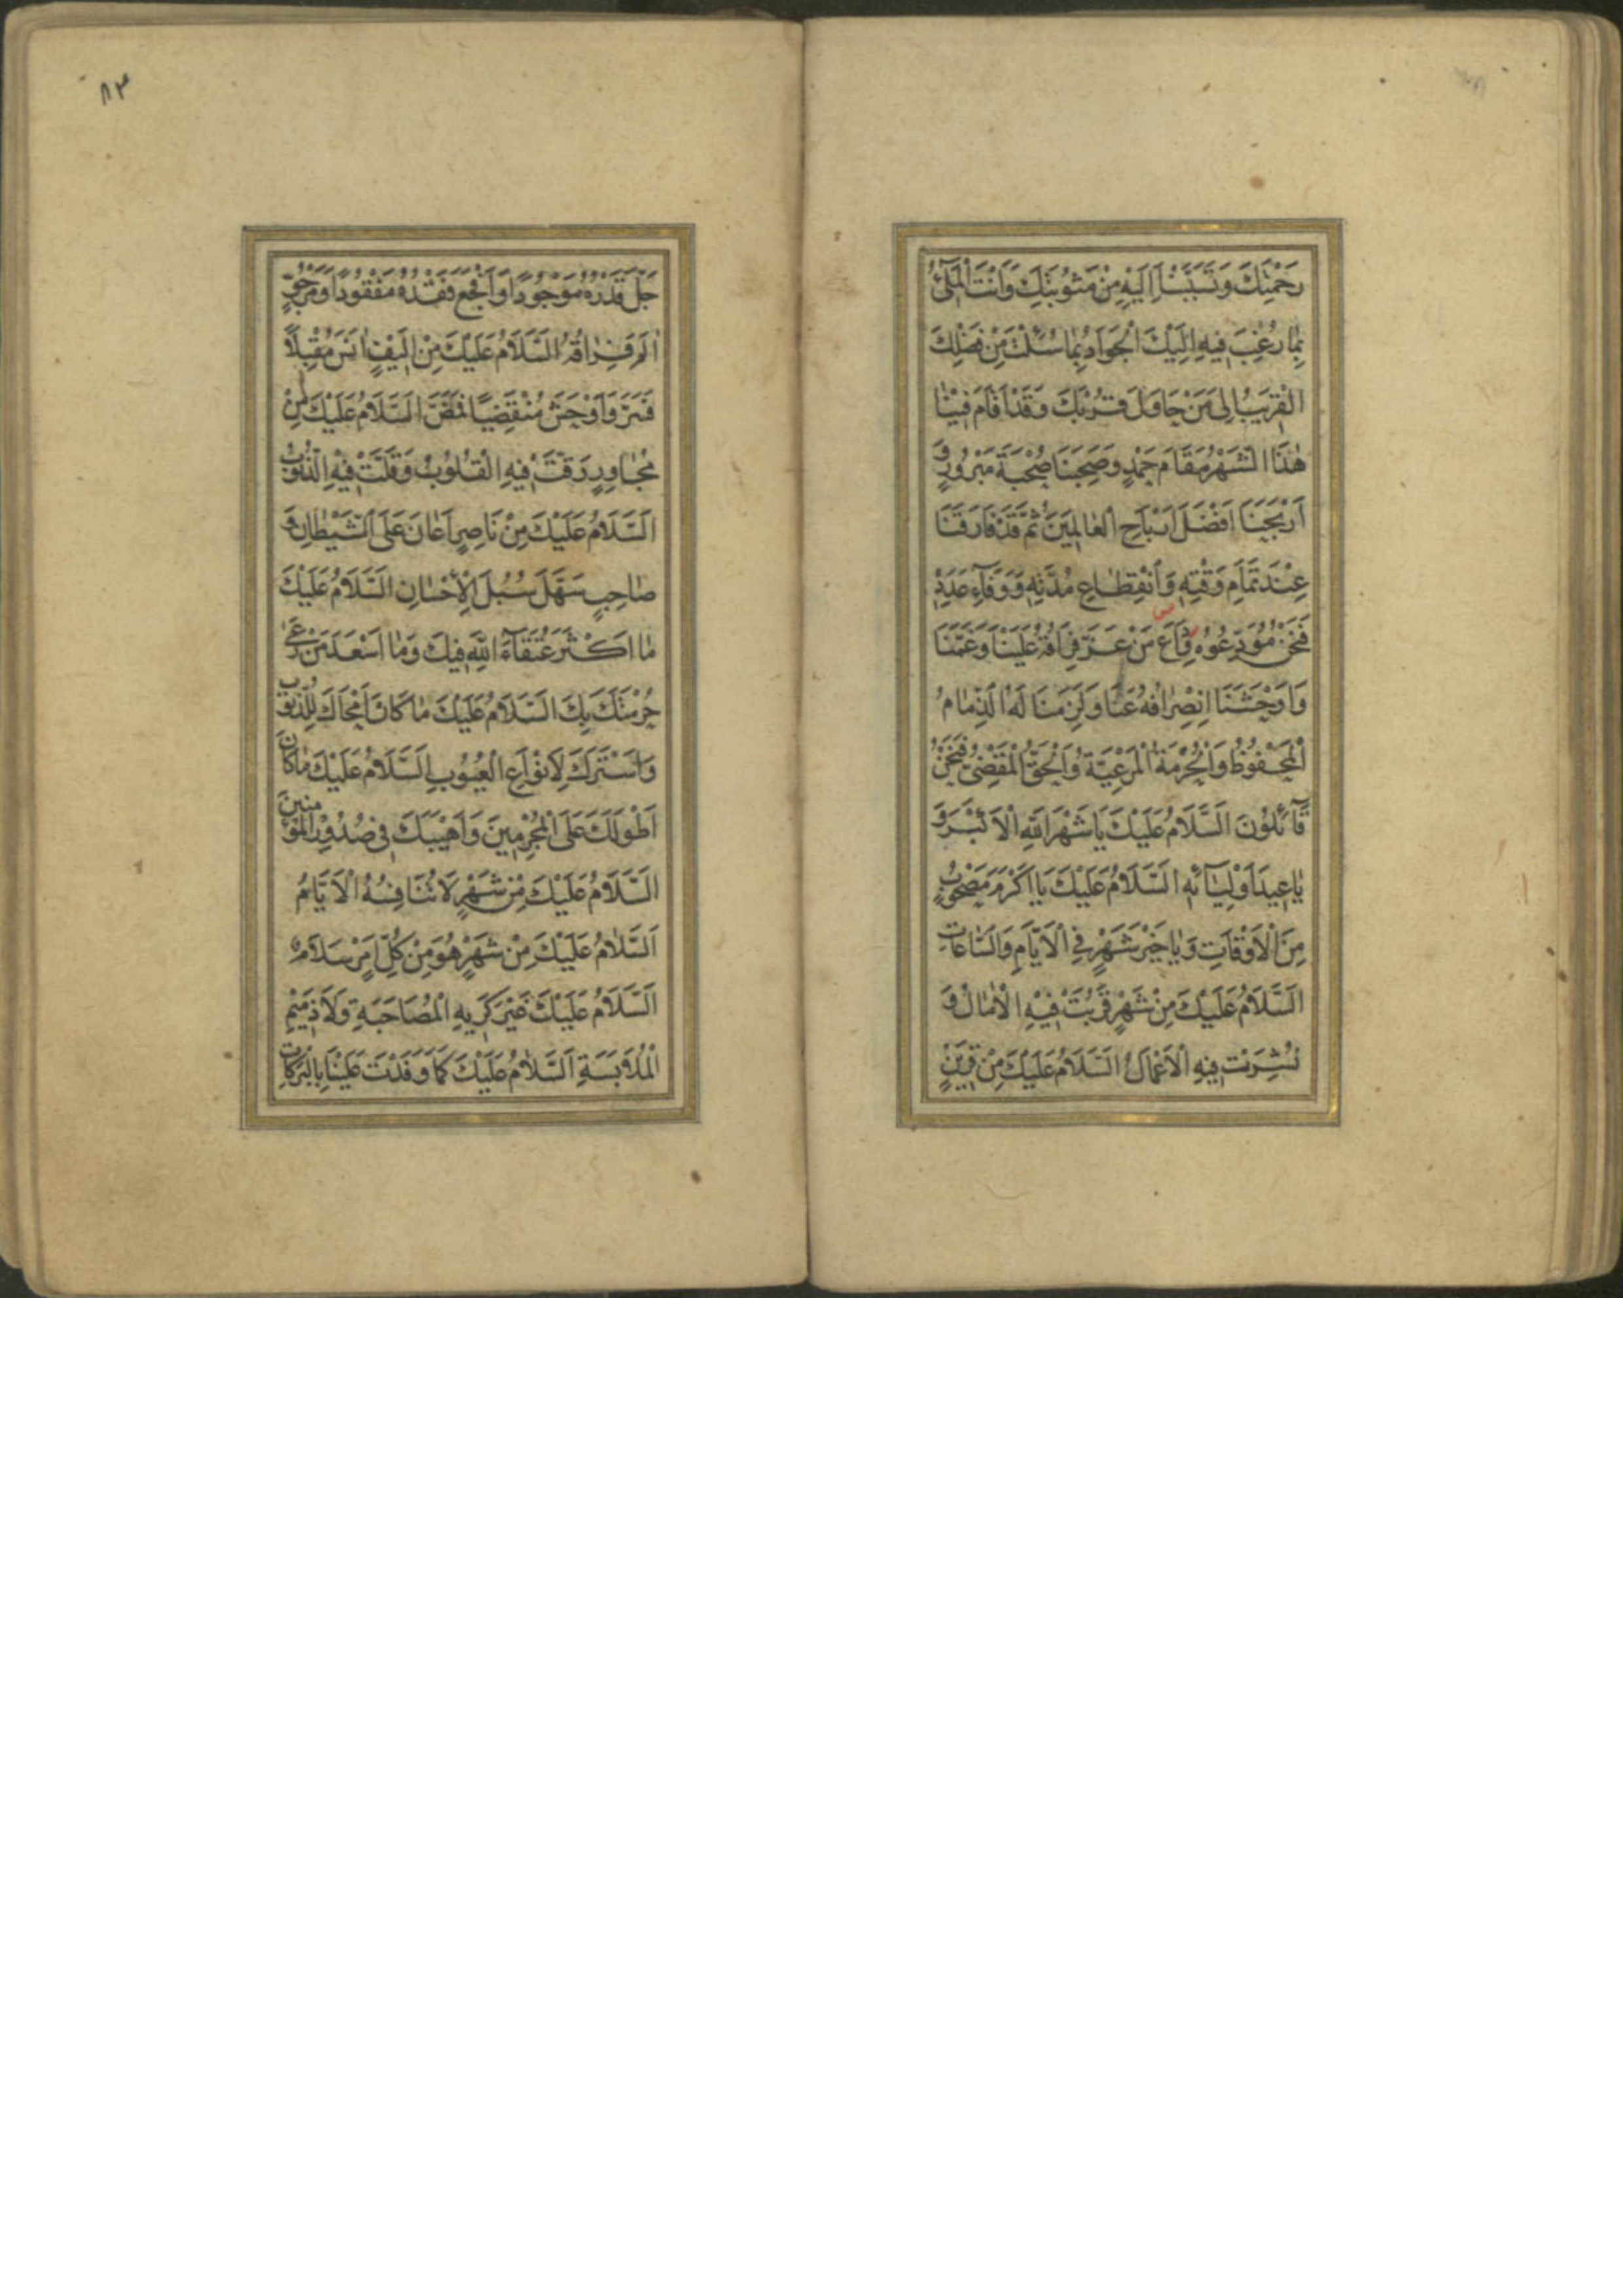 رَحْمَتِكَ وَتَسَبَّبْنَا اِلَيْهِ مِنْ مَثُوبَتِكَ وَاَنْتَ الْمَلِيُّ
بِمَا رُغِبَ فِيهِ اِلَيْكَ الْجَوَادُ بِمَا سُئِلْتَ مِنْ فَضْلِكَ
الْقَرِيبُ اِلٰى مَنْ حَاوَلَ قُرْبَكَ وَقَدْ اَقَامَ فِينَا
هٰذَا الشَّهْرُ مَقَامَ حَمْدٍ وَصَحِبَنَا صُحْبَةَ مَبْرُورٍ وَ
اَرْبَحَنَا اَفْضَلَ اَرْبَاحِ الْعَالَمِينَ ثُمَّ قَدْ فَارَقَنَا
عِنْدَ تَمَامِ وَقْتِهِ وَانْقِطَاعِ مُدَّتِهِ وَوَفَآءِ عَدَدِهِ
فَنَحْنُ مُوَدِّعُوهُ وِدَاعَ مَنْ عَزَّ فِرَاقُهُ عَلَيْنَا وَغَمَّنَا
وَاَوْحَشَنَا انْصِرَافُهُ عَنَّا وَلَزِمَنَا لَهُ الذِّمَامُ
الْمَحْفُوظُ وَالْحُرْمَةُ الْمَرْعِيَّةُ وَالْحَقُّ الْمَقْضِيُّ فَنَحْنُ
قَآئِلُونَ اَلسَّلَامُ عَلَيْكَ يَا شَهْرَ اللّٰهِ الْاَكْبَرَ وَ
يَا عِيدَ اَوْلِيَآئِهِ اَلسَّلَامُ عَلَيْكَ يَا اَكْرَمَ مَصْحُوبٍ
مِنَ الْاَوْقَاتِ وَيَا خَيْرَ شَهْرٍ فِي الْاَيَّامِ وَالسَّاعَاتِ
اَلسَّلَامُ عَلَيْكَ مِنْ شَهْرٍ قَرُبَتْ فِيهِ الْاٰمَالُ وَ
نُشِرَتْ فِيهِ الْاَعْمَالُ اَلسَّلَامُ عَلَيْكَ مِنْ قَرِينٍ
٨٣
جَلَّ قَدْرُهُ مَوْجُودًا وَاَفْجَعَ فَقْدُهُ مَفْقُودًا وَمَرْجُوٍّ
اٰلَمَ فِرَاقُهُ اَلسَّلَامُ عَلَيْكَ مِنْ اَلِيفٍ اٰنَسَ مُقْبِلًا
فَسَرَّ وَاَوْحَشَ مُنْقَضِيًا فَمَضَّ اَلسَّلَامُ عَلَيْكَ مِنْ
مُجَاوِرٍ رَقَّتْ فِيهِ الْقُلُوبُ وَقَلَّتْ فِيهِ الذُّنُوبُ
اَلسَّلَامُ عَلَيْكَ مِنْ نَاصِرٍ اَعَانَ عَلَى الشَّيْطَانِ وَ
صَاحِبٍ سَهَّلَ سُبُلَ الْاِحْسَانِ اَلسَّلَامُ عَلَيْكَ
مَا اَكْثَرَ عُتَقَآءَ اللّٰهِ فِيكَ وَمَا اَسْعَدَ مَنْ رَعٰى
حُرْمَتَكَ بِكَ اَلسَّلَامُ عَلَيْكَ مَا كَانَ اَمْحَاكَ لِلذُّنُوبِ
وَاَسْتَرَكَ لِاَنْوَاعِ الْعُيُوبِ اَلسَّلَامُ عَلَيْكَ مَا كَانَ
اَطْوَلَكَ عَلَى الْمُجْرِمِينَ وَاَهْيَبَكَ فِي صُدُورِ الْمُؤْمِنِينَ
اَلسَّلَامُ عَلَيْكَ مِنْ شَهْرٍ لَا تُنَافِسُهُ الْاَيَّامُ
اَلسَّلَامُ عَلَيْكَ مِنْ شَهْرٍ هُوَ مِنْ كُلِّ اَمْرٍ سَلَامٌ
اَلسَّلَامُ عَلَيْكَ غَيْرَ كَرِيهِ الْمُصَاحَبَةِ وَلَا ذَمِيمِ
الْمُلَابَسَةِ اَلسَّلَامُ عَلَيْكَ كَمَا وَفَدْتَ عَلَيْنَا بِالْبَرَكَاتِ